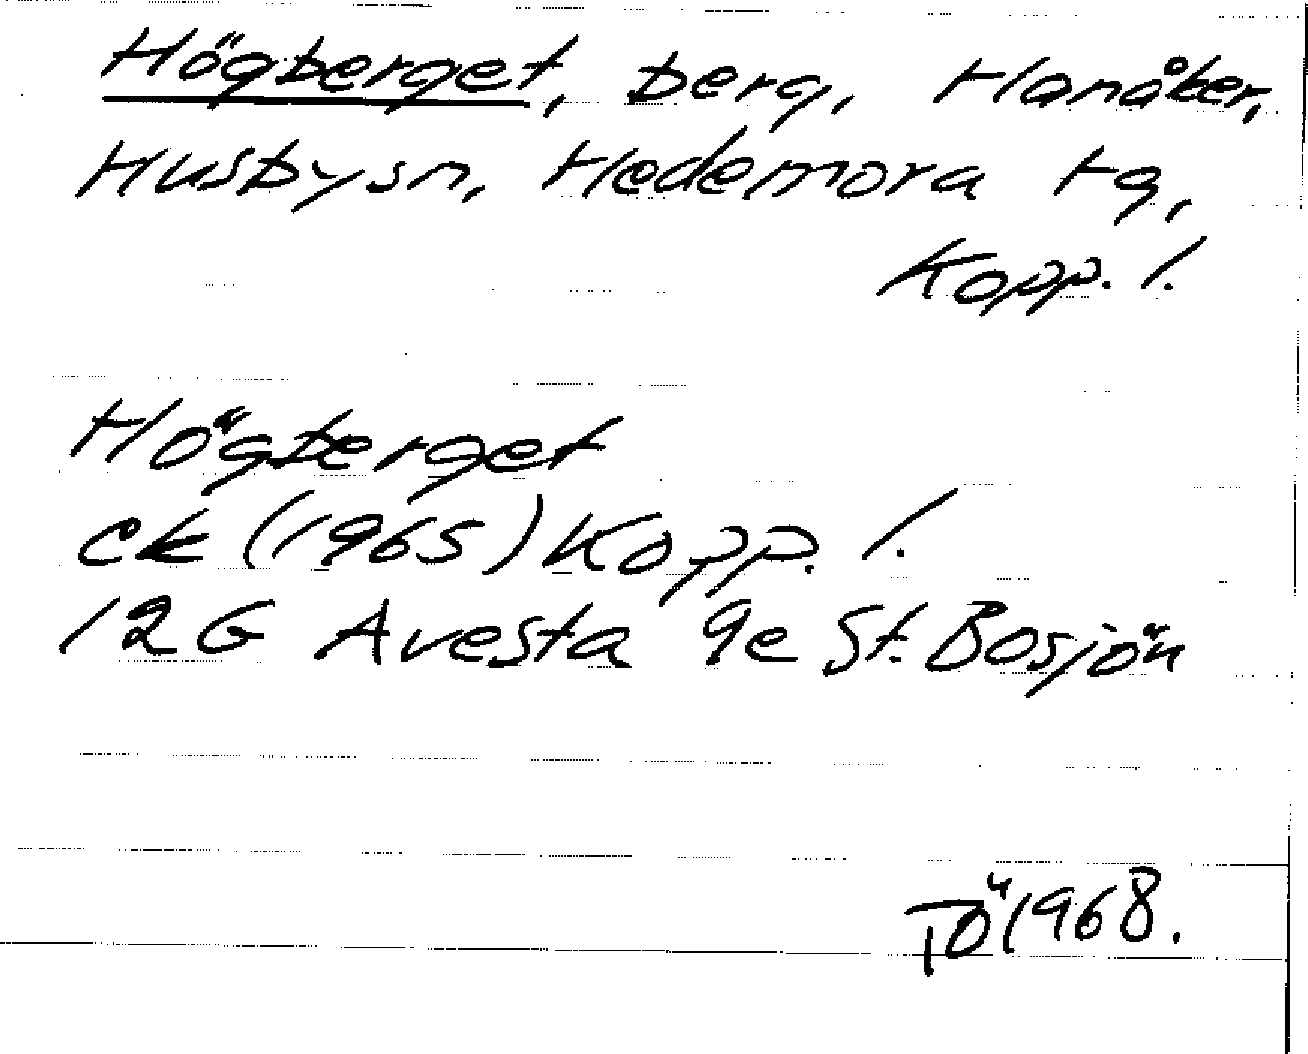 Högberget, berg, Hanåker,
Husby sn, Hedemora tg,
Kopp. l.
Högberget
ek (1965) Kopp. l.
12G Avesta 9e St. Bosjön
TÖ 1968.